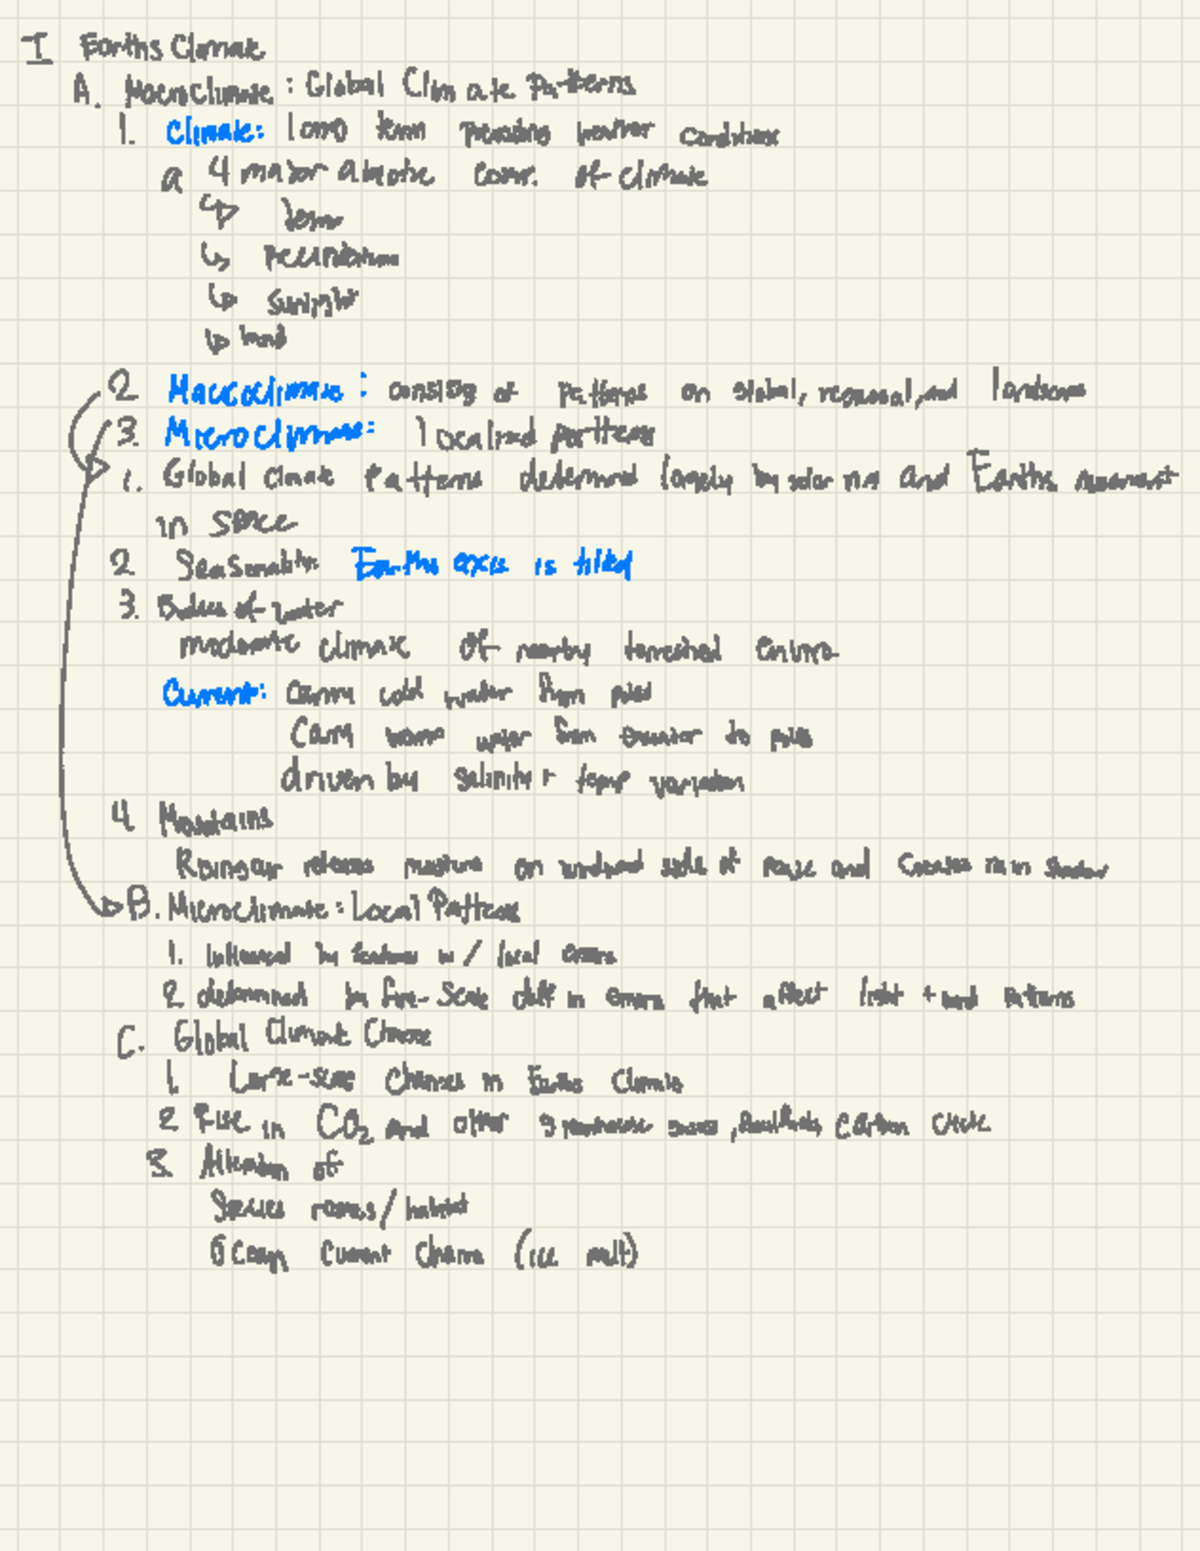 I Earths Climate
A. Macroclimate: Global Climate Patterns
1. Climate: long term prevailing weather conditions
a 4 major abiotic com. of climate
↳ temp
↳ Precipitation
↳ sunlight
↳ wind
2 Macroclimate: consists of patterns on global, regional, and landscape
3. Microclimate: localized patterns
1. Global Climate Patterns determined largely by solar and Earths movement
in space
2 Seasonality Earths axis is tilted
3. Bodies of water
moderate climate of nearby terrestrial enviro
Current: carry cold water from poles
Carry warm water from equator to poles
driven by salinity + temp variation
4 Mountains
Rising air releases moisture on windward side of and creates rain shadow
B. Microclimate: Local Patterns
1. Influenced by features w/ local
2 determined by fine-scale diff in that affect light + wind patterns
C. Global Climate Change
1. Large-scale changes in Earths Climate
2 Rise in CO2 and other greenhouse gases, carbon cycle
3. Alteration of
Species ranges/habitat
Ocean current change (ice melt)